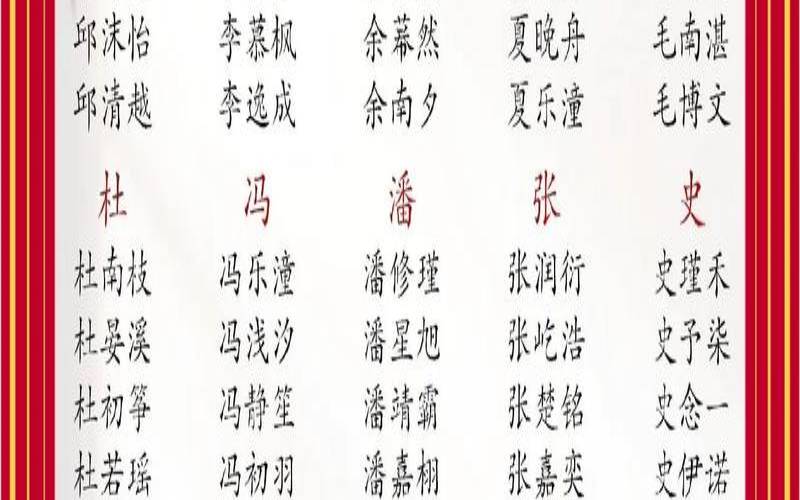 邱沫怡 李慕枫 余幕然 夏晚舟 毛南湛
邱清越 李逸成 余南夕 夏乐潼 毛博文
杜 冯 潘 张 史
杜南枝 冯乐潼 潘修瑾 张润衍 史瑾禾
杜晏溪 冯浅汐 潘星旭 张屹浩 史予柒
杜初筝 冯静笙 潘靖霸 张楚铭 史念一
杜若瑶 冯初羽 潘嘉栩 张嘉奕 史伊诺